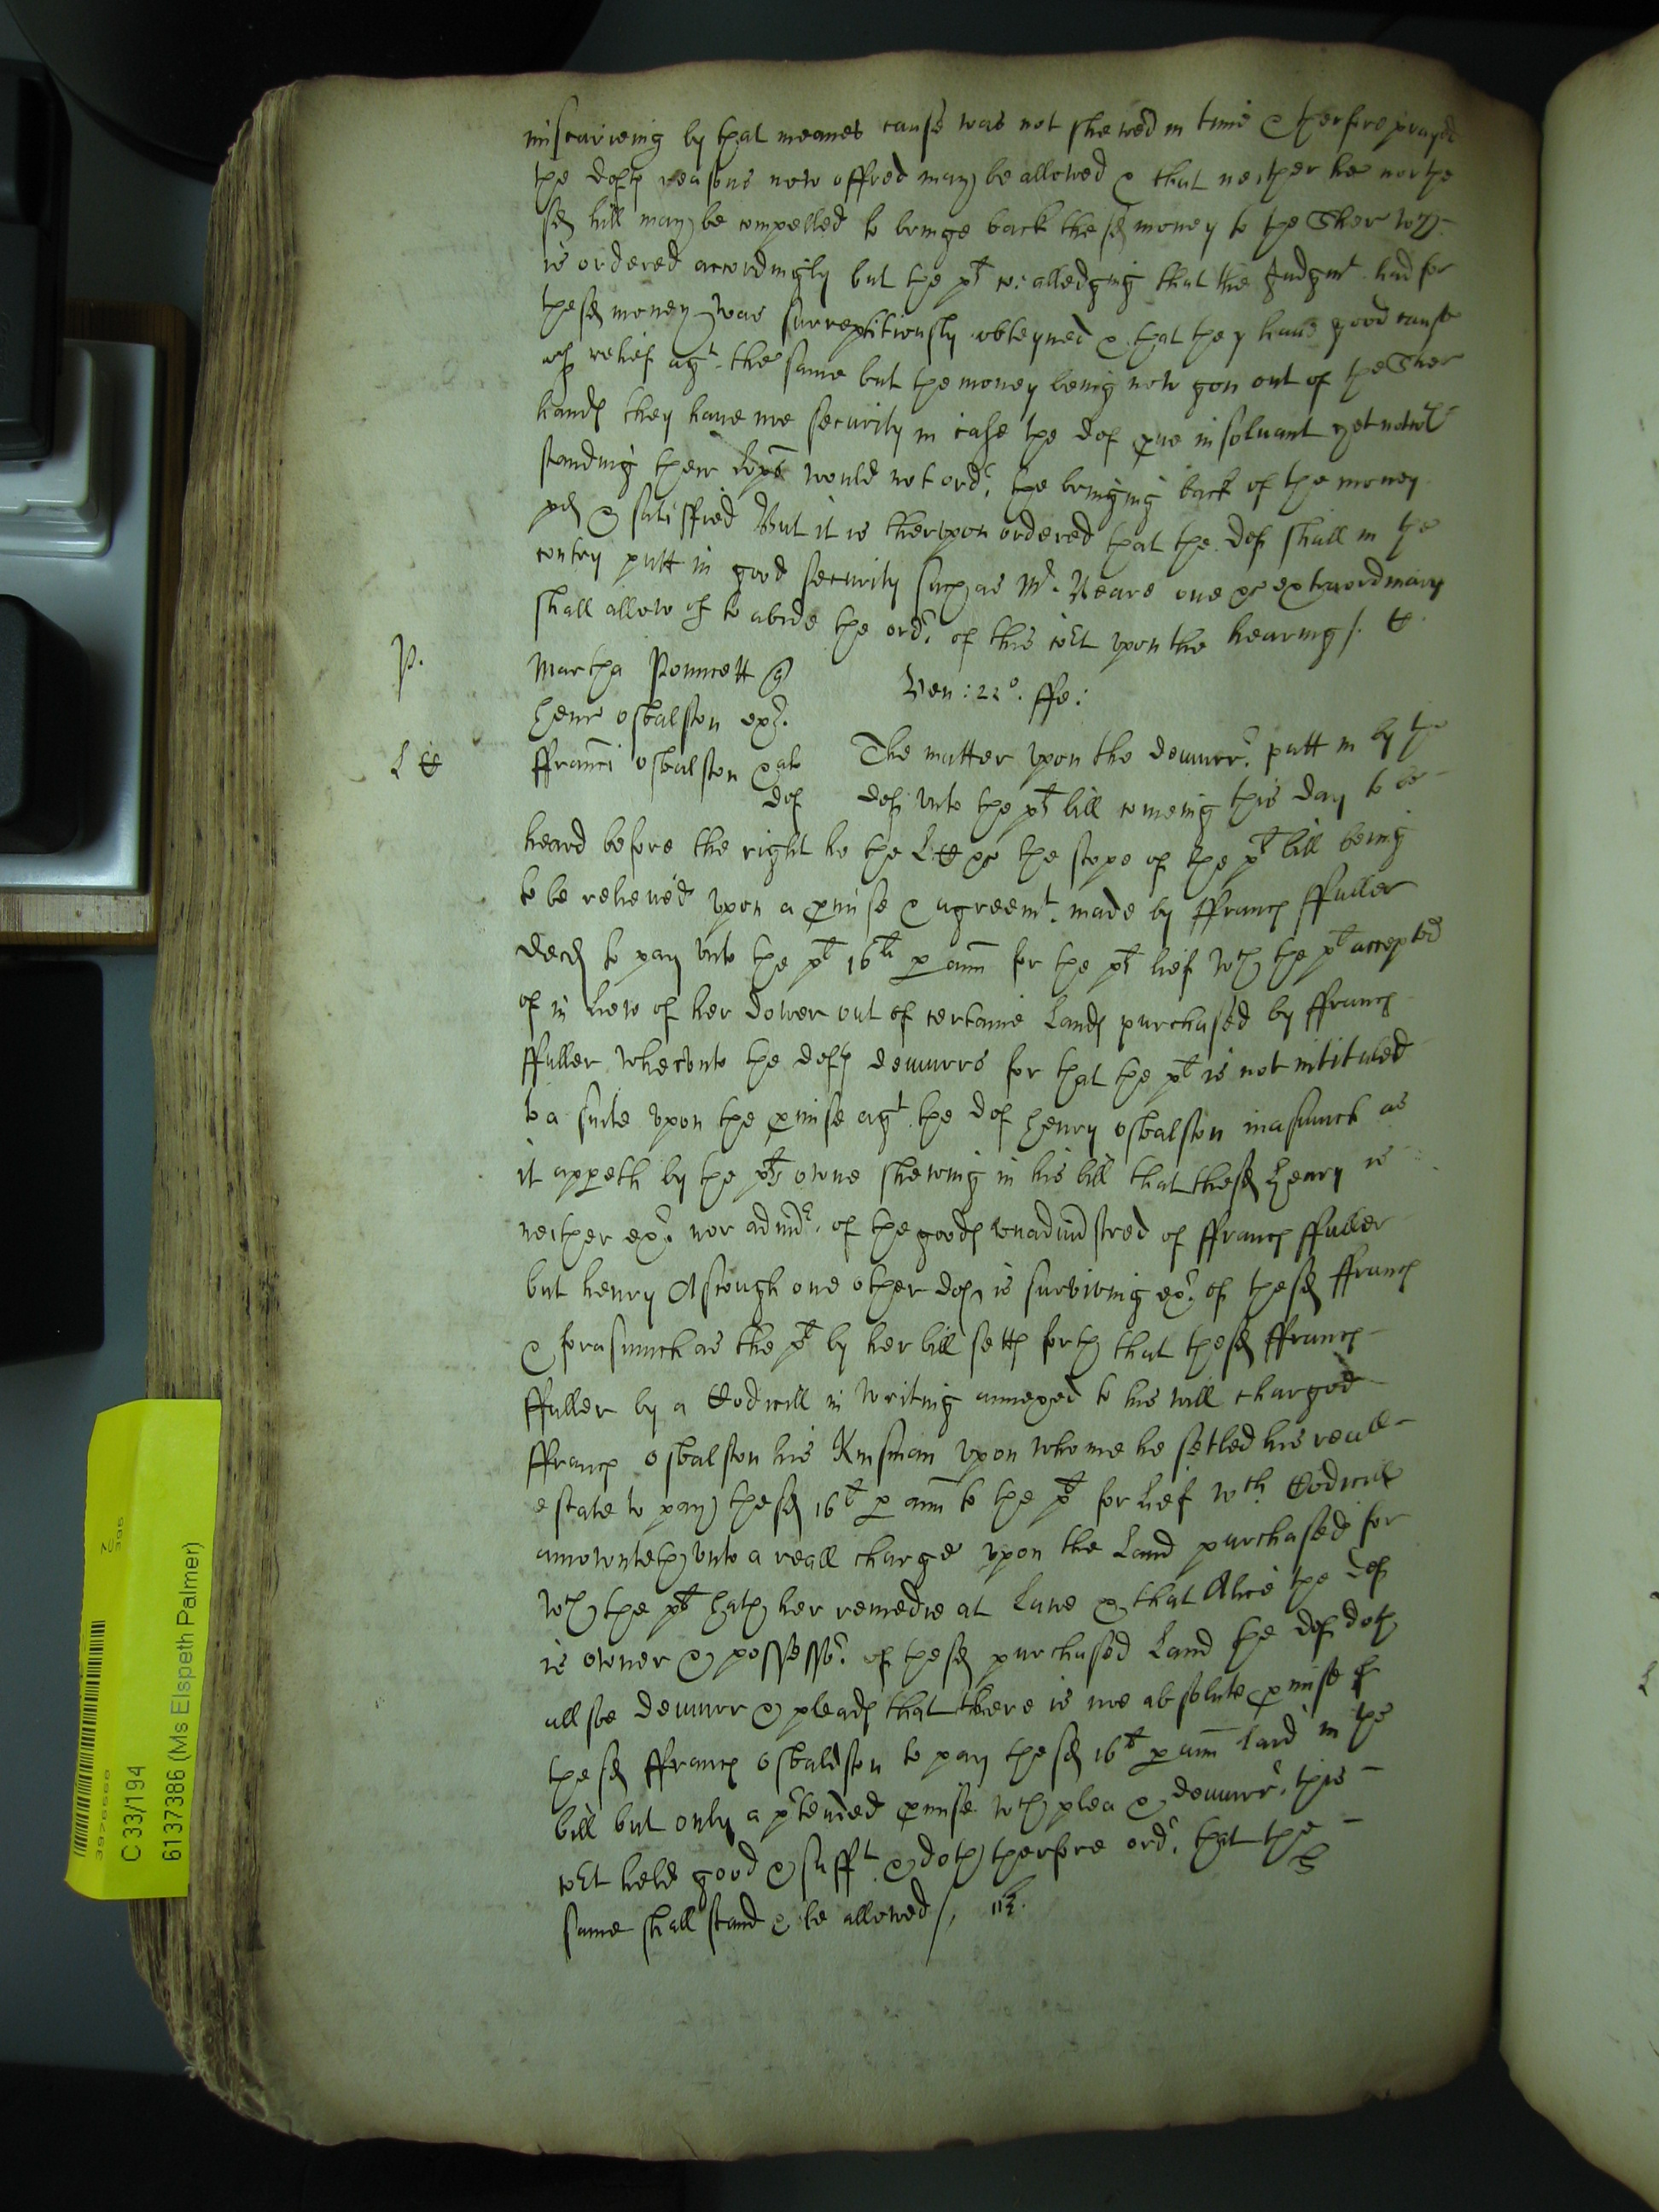 miscarieing by that meanes cause was not shewed in time & therfore prayed
the deftes reasons now offred may be allowed & that neither he nor the
sd hill may be compelled to bringe back the sd money to the Sher wch
is ordered accordingly but the plt &c: alledging that the Judgmt had for
the sd money was surreptitiously obteyned & that they have good cause
of relief agt the same but the money being now gon out of the Sher
hands they have noe security in case the def prve insolvant yet notwth
standing their Lopps would not ordr the bringing back of the money
pd & satisffied But it is therupon ordered that the def shall in the
contry putt in good security such as Mr Neave one &c extraordinary
shall allow of to abide the ordr of this Cort upon the hearing /.
P.
Martha Pouncett
Ven: 22o: ffe:
Henr Osbalston exr
L C
ffranci Osbalston & al
def
The matter upon the demurrr putt in by the
deftes unto the plts bill comeing this day to be
heard before the right ho the L C &c the scope of the plts bill being
to be relieved upon a pmise & agreemt made by ffrancs ffuller
decd to pay unto the plt 16li p ann for the plts lief wch the plt accepted
of in liew of her dower out of certaine Lands purchased by ffrancs
ffuller whereunto the deftes demurre for that the plt is not intituled
to a suite upon the pmise agt the def Henry Osbalston inasmuch as
it appeth by the plts owne shewing in his bill that the sd Henry is
neither exr nor admr of the goods unadmistred of ffrancs ffuller
but henry Ascough one other def is surviving exr of the sd ffrancs
& forasmuch as the plt by her bill setts forth that the sd ffrancs
ffuller by a Codicill in writing annexed to his will charged
ffrancs Osbalston his Kinsman upon whome he setled his reall
estate to pay the sd 16li p ann to the plt for lief wch Codicill
amounteth unto a reall charge upon the Land purchased for
wch the plt hath her remedie at Lawe & that Alice the def
is owner & possessor of the sd purchased Land the def doth
allsoe demurr & pleads that there is noe absolute pmise of
the sd ffrancs Osbaldston to pay the sd 16li p ann laid in the
bill but only a ptended pmise wch plea & demurrr this
Cort held good & sufft & doth therfore ordr that the
same shall stand & be allowed /,
39765568
C 33/194
6137386 (Ms Elspeth Palmer)